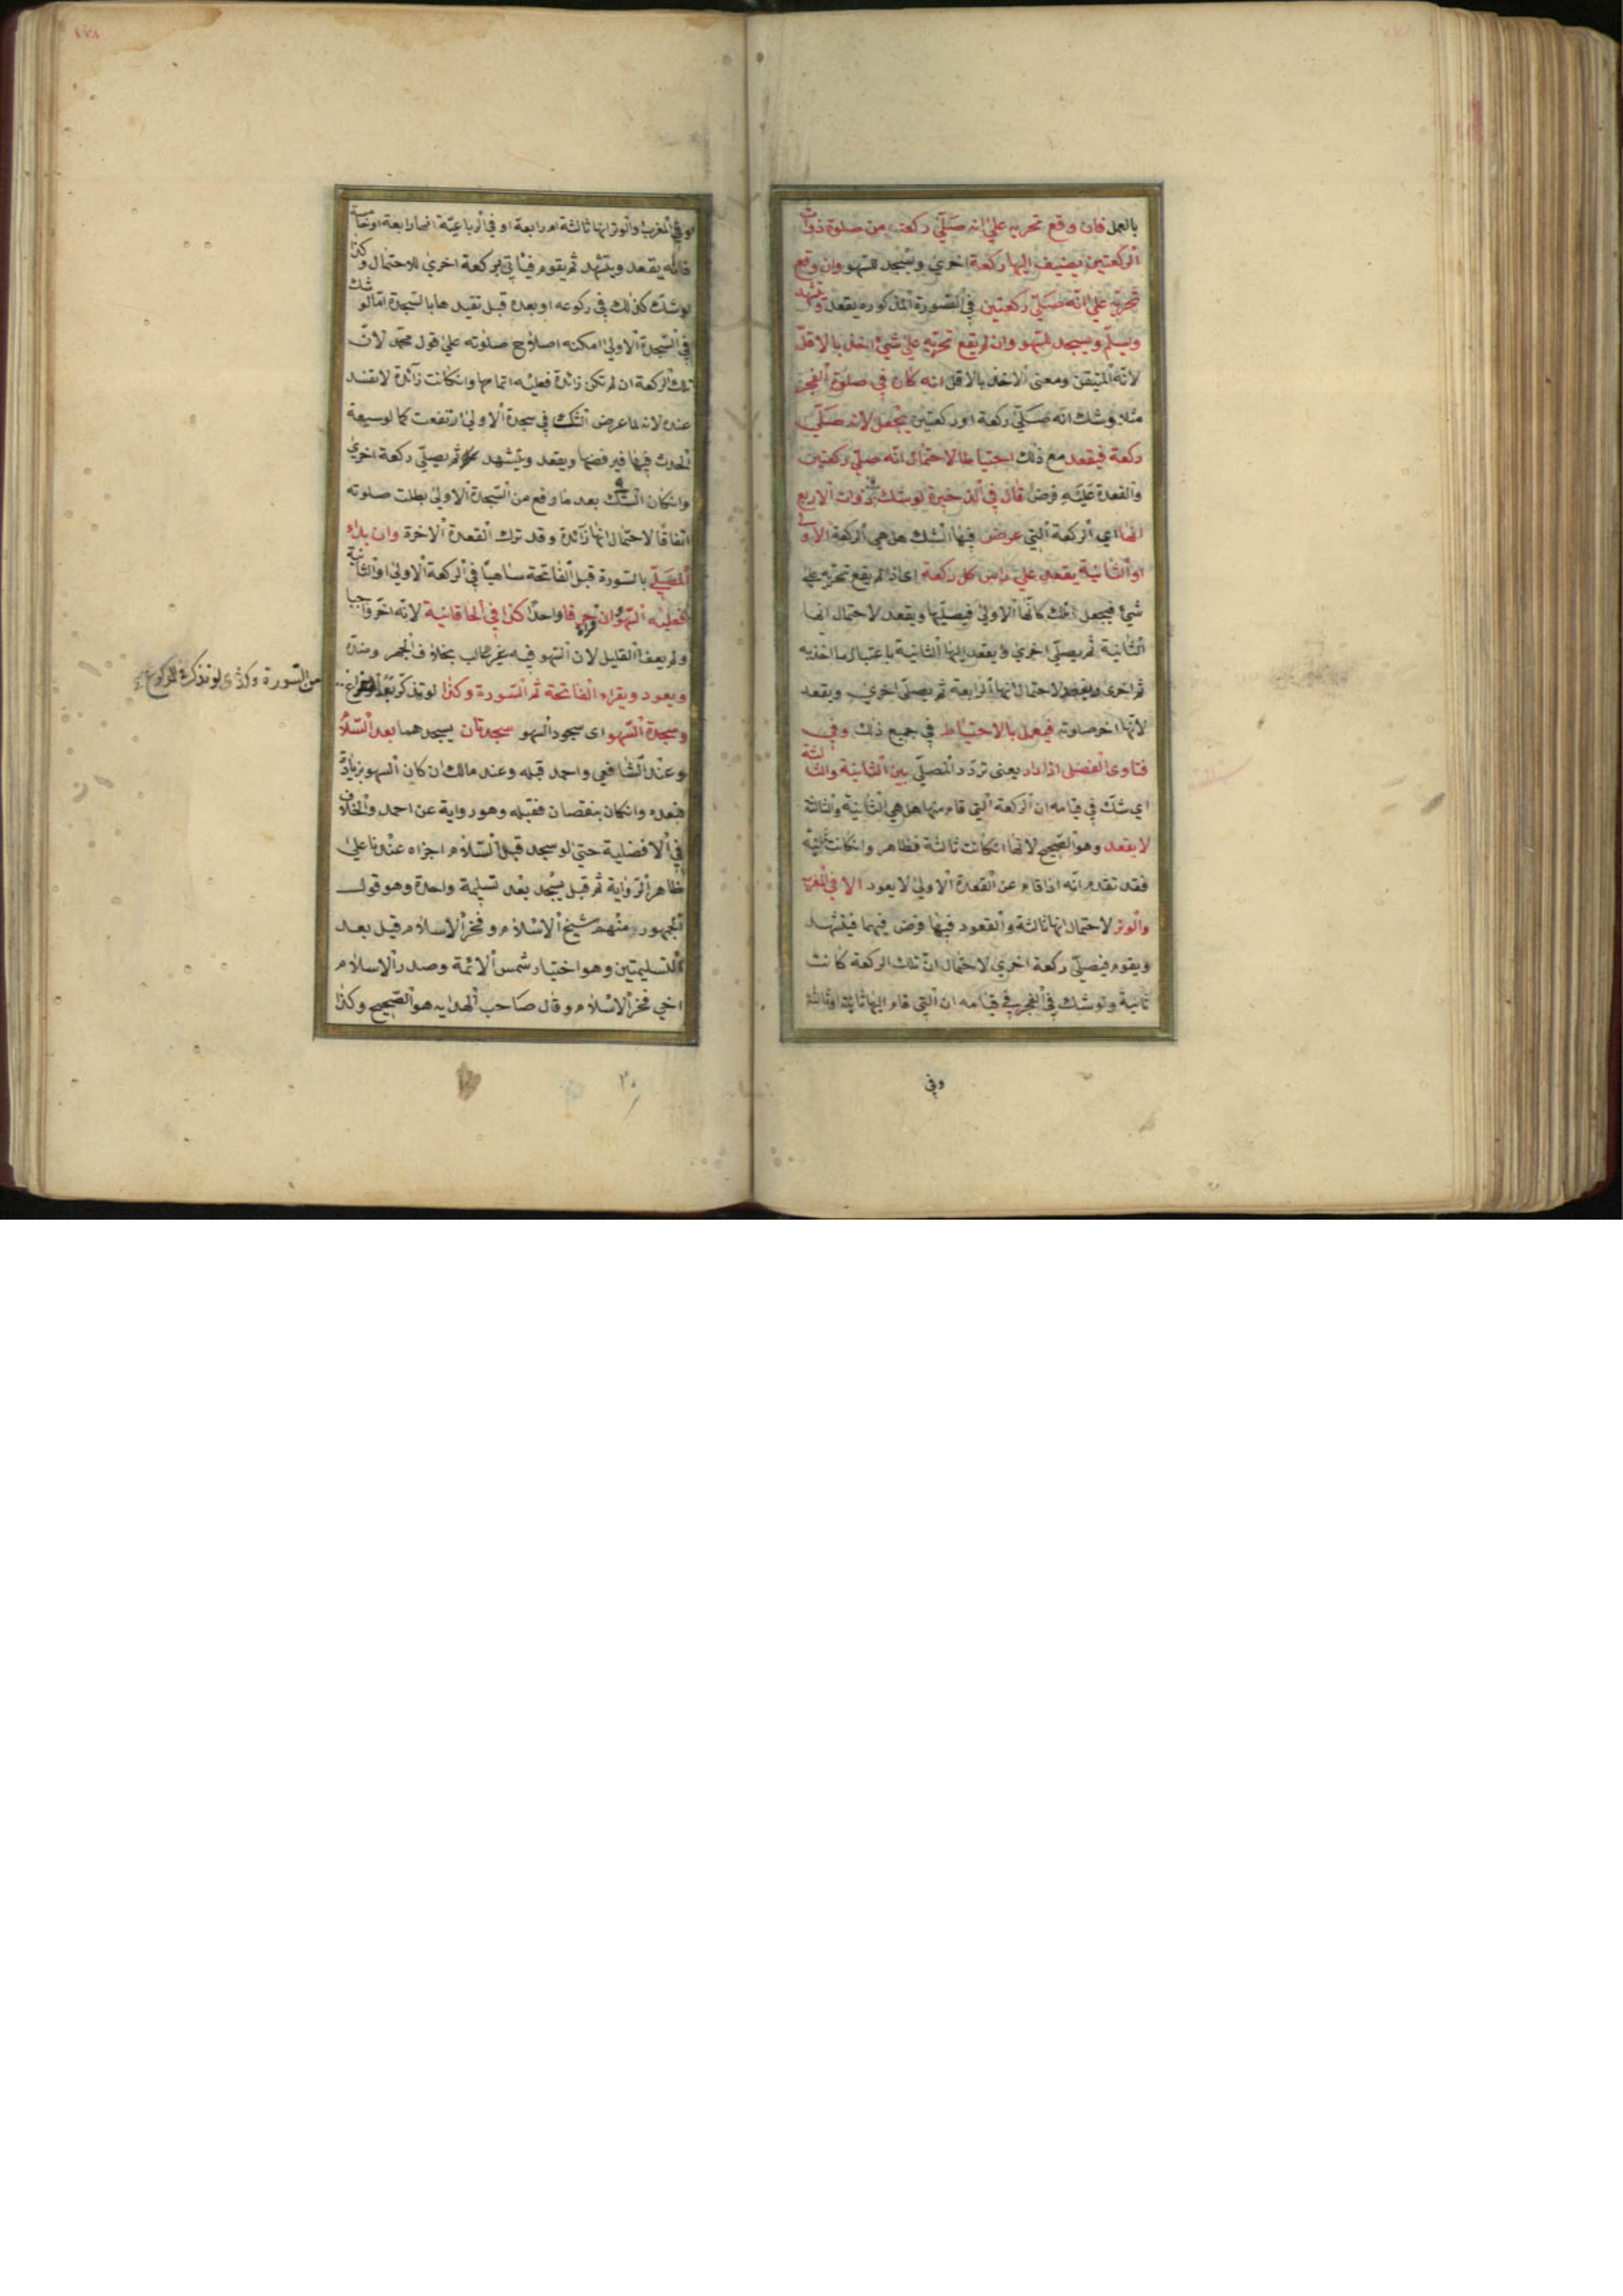 بالعمل فان وقع تحريه علي انه صلّي ركعة من صلوة ذوات
الركعتين يضيف اليها ركعة اخري ويسجد للسهو وان وقع
تحريه علي انّه صلّي ركعتين في الصورة المذكوره يقعد وتشهد
ويسلّم ويسجد للسهو وان لم يقع تحريه علي شئ اخذ بالاقلّ
لانّه المتيقن ومعني الاخذ بالاقل انه كان في صلوة الفجر
مثلا وشك انّه صلّي ركعة او ركعتين يجعل لانه صلّي
ركعة فيقعد مع ذلك احتياطا لاحتمال انّه صلّي ركعتين
والقعدة عليه فرض قال في الذخيرة لو شك في ذوات الاربع
انها اي الركعة التي عرض فيها الشك هل هي الركعة الاولي
او الثانية يقعد علي راس كل ركعة اي اذا لم يقع تحريه علي
شئ فيجعل تلك كانّها الاولي فيصلّيها ويقعد لاحتمال انها
الثانية ثم يصلّي اخري ويقعد لانها الثانية باعتبار ما اخذ به
ثم اخري ويقعد لاحتمال انها الرابعة ثم يصلّي اخري ويقعد
لانّها اخر صلوته فيعمل بالاحتياط في جميع ذلك وفي
فتاوي الفضلي اذا دار يعني تردّد المصلّي بين الثانية والثالثة
اي شك في قيامه ان الركعة التي قام منها هل هي الثانية والثالثة
لا يقعد وهو الصحيح لانّها انكانت ثالثة فظاهر وانكانت ثانية
فقد تقدم انّه اذا قام عن القعدة الاولي لا يعود الا في المغرب
والوتر لاحتمال انها ثالثة والقعود فيها فرض فيهما فيتشهد
ويقوم فيصلّي ركعة اخري لاحتمال انّ تلك الركعة كانت
ثانية ولو شك في الفجر في قيامه ان التي قام اليها ثانية او ثالثة
وفي
١٧٨
او في المغرب او الوتر انها ثالثة او رابعة او في الرباعيّة انها رابعة او خامسة
فانّه يقعد ويتشهد ثم يقوم فيأتي بركعة اخري للاحتمال وكذا
لو شك كذلك في ركوعه او بعده قبل تقيدها بالسجدة امّا لو شك
في السجدة الاولي امكنه اصلاح صلوته علي قول محمّد لانّ
تلك الركعة ان لم تكن زائدة فعليه اتمامها وانكانت زآئدة لا تفسد
عنده لانه لما عرض الشك في سجدة الاولي ارتفعت كما لو سبقه
الحدث فيها فيرفضها ويقعد ويتشهد ثم يصلّي ركعة اخري
وانكان الشك بعد ما رفع من السجدة الاولي بطلت صلوته
اتفاقا لاحتمال انها زآئدة وقد ترك القعدة الاخرة وان بدأ
المصلّي بالسورة قبل الفاتحة ساهيا في الركعة الاولي او الثانية
فعليه السهو وان قرأ حرفا واحدا كذا في الخاقانية لانّه اخّر واجبا
ولم يعف القليل لان السهو فيه غير غالب بخلاف الجهر وضدّه
ويعود ويقراء الفاتحة ثم السورة وكذا لو تذكّر بعد الفراغ
من السورة وكذي لو تذكر في الركوع
وسجدة السهو اي سجود السهو سجدتان يسجدهما بعد السلام
وعند الشافعي واحمد قبله وعند مالك ان كان السهو بزيادة
فبعده وانكان بنقصان فقبله وهو رواية عن احمد والخلاف
في الافضلية حتي لو سجد قبل السلام اجزاه عندنا علي
ظاهر الرواية ثم قبل يسجد بعد تسليمة واحدة وهو قول
الجمهور منهم شيخ الاسلام وفخر الاسلام قيل بعد
التسليمتين وهو اختيار شمس الائمة وصدر الاسلام
اخي فخر الاسلام وقال صاحب الهدايه هو الصحيح وكذا